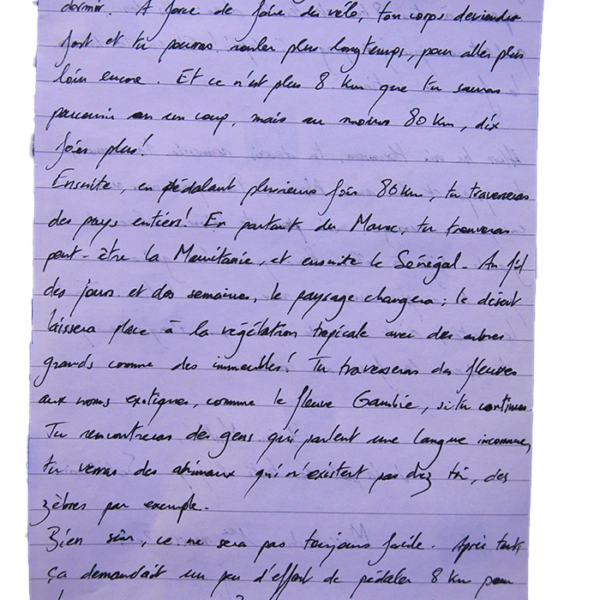 dormir. A force de faire du vélo, ton corps deviendra
fort et tu pourras rouler plus longtemps, pour aller plus
loin encore. Et ce n'est plus 8 km que tu sauras
parcourir en un coup, mais au moins 80 km, dix
fois plus!
Ensuite, en pédalant plusieurs fois 80 km, tu traverseras
des pays entiers! En partant du Maroc, tu trouveras
peut-être la Mauritanie, et ensuite le Sénégal. Au fil
des jours et des semaines, le paysage changera : le désert
laissera place à la végétation tropicale avec des arbres
grands comme des immeubles! Tu traverseras des fleuves
aux noms exotiques, comme le fleuve Gambie, si tu continues
Tu rencontreras des gens qui parlent une langue inconnue,
tu verras des animaux qui n'existent pas chez toi, des
zèbres par exemple.
Bien sûr, ce ne sera pas toujours facile. Après tout,
ça demandait un peu d'effort de pédaler 8 km pour